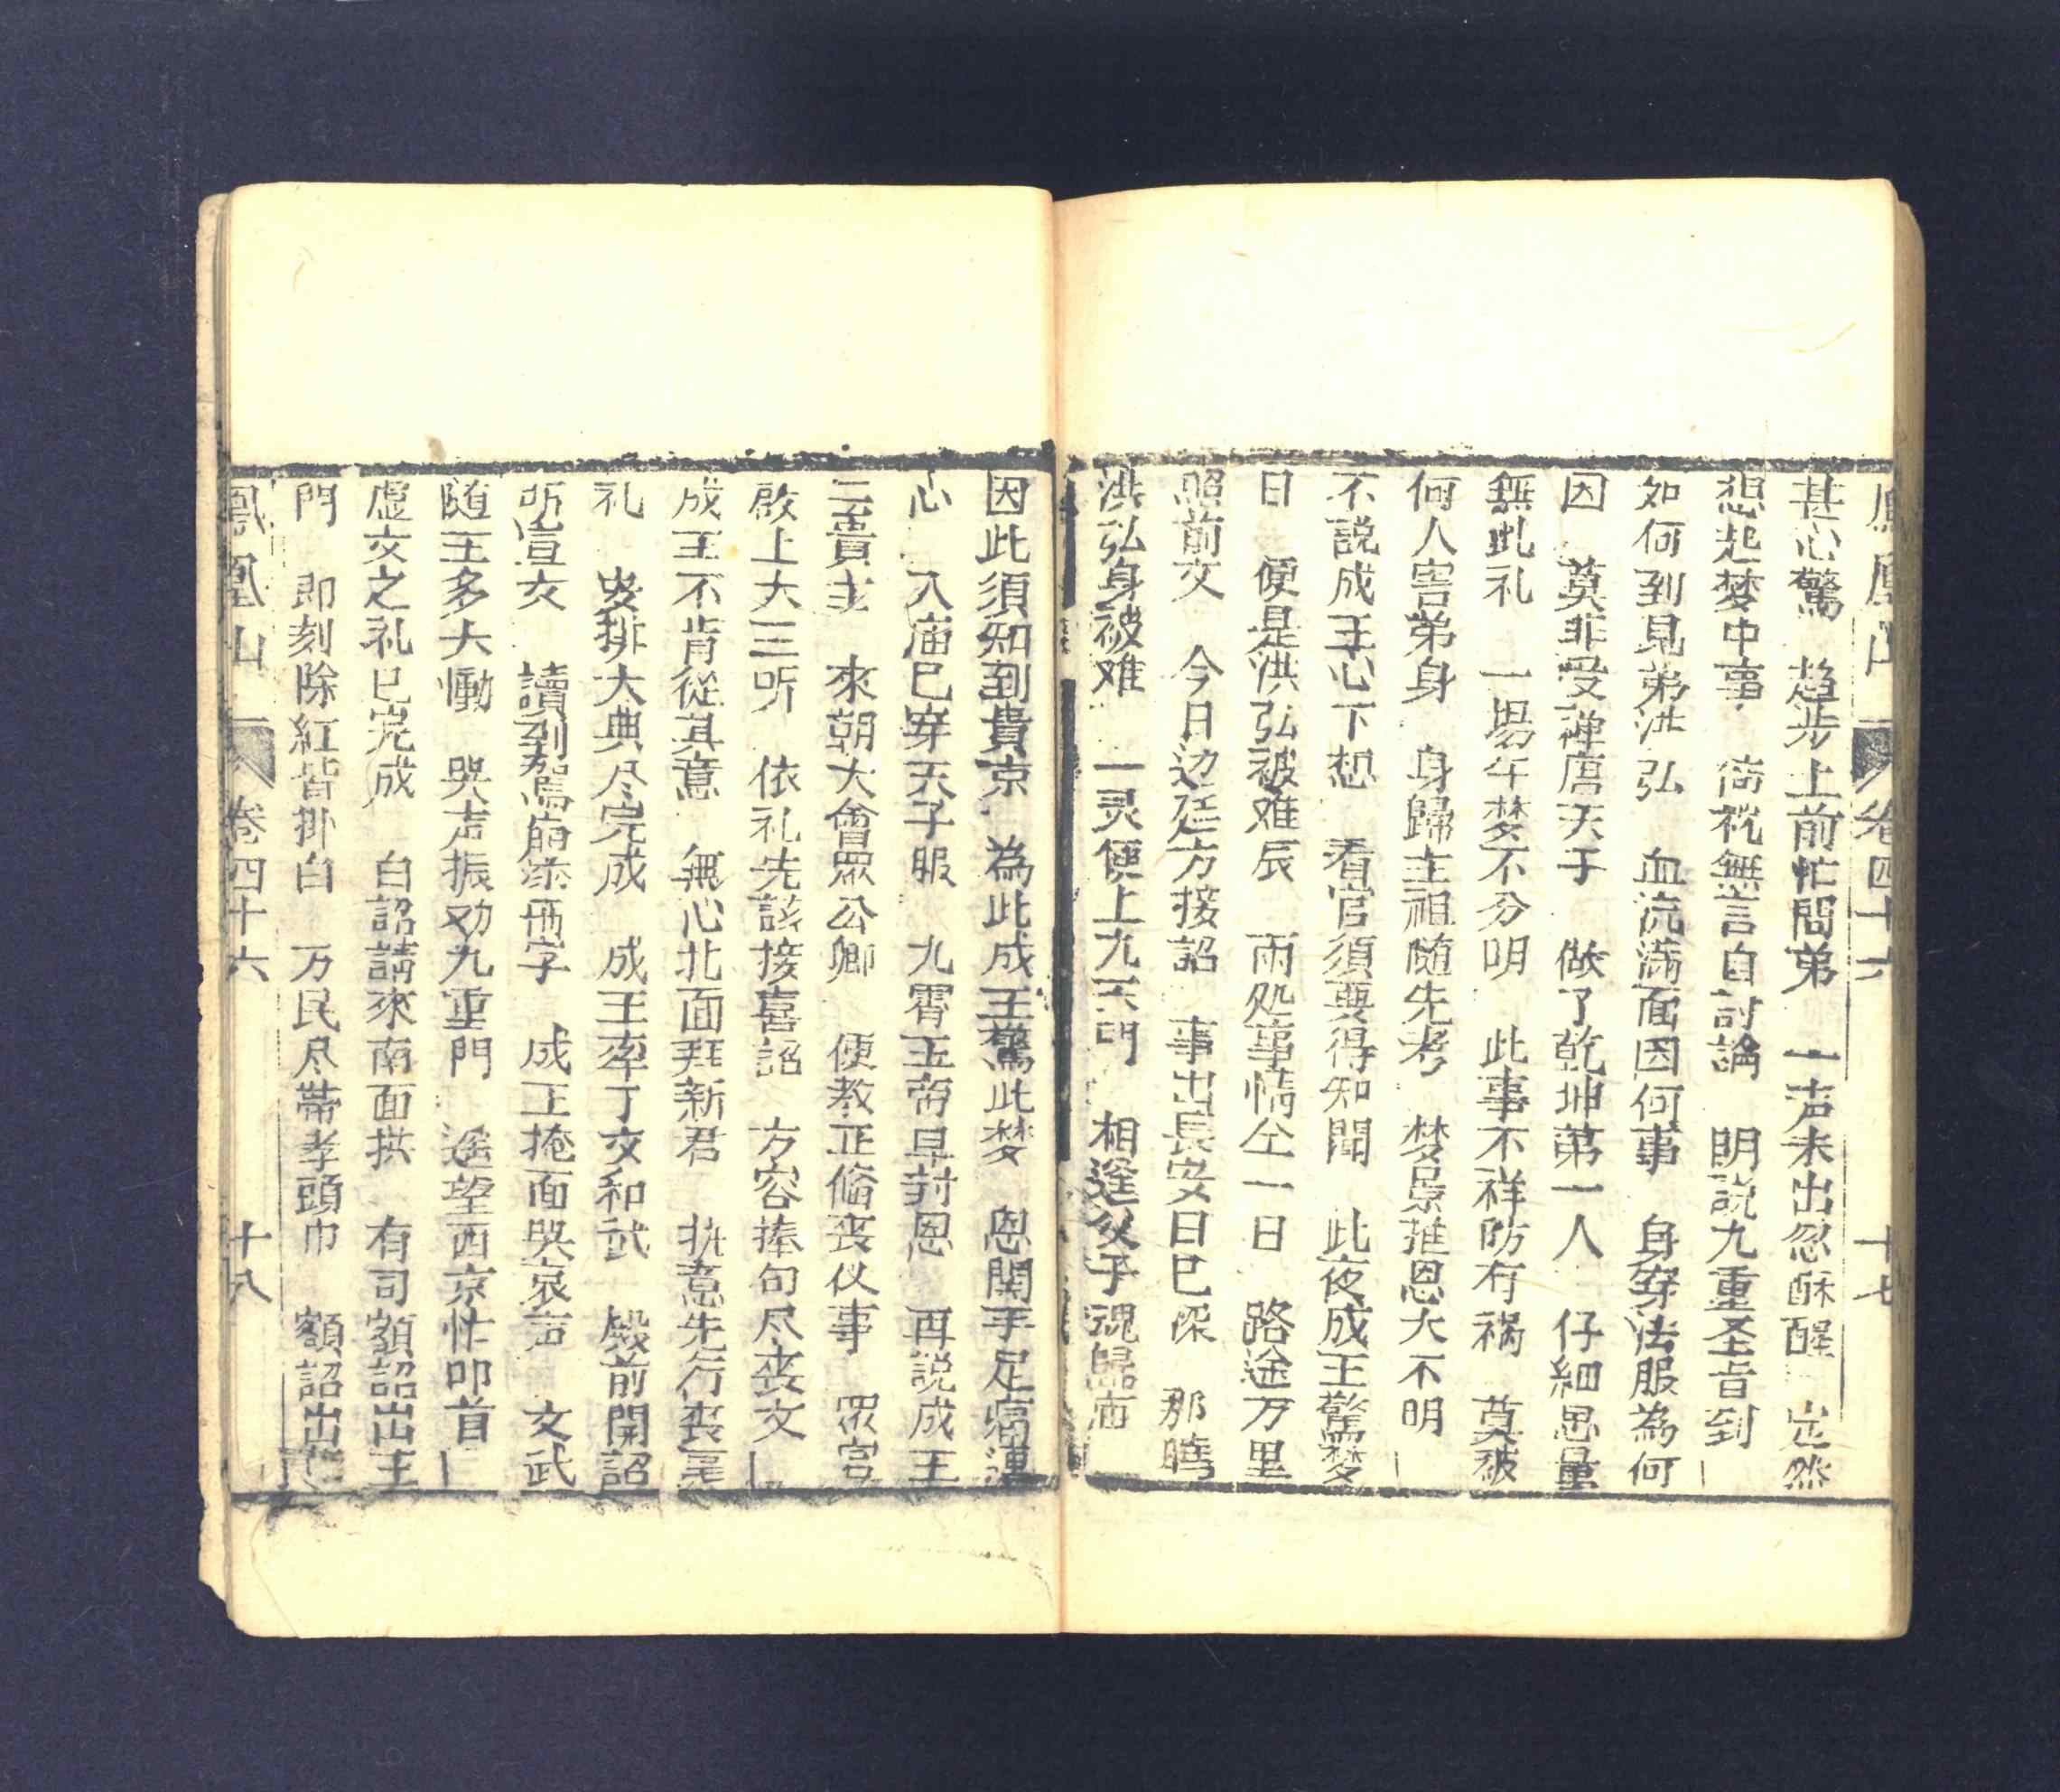 鳳凰山 卷四十六 十七
甚心驚 趋步上前忙問弟 一声未出忽酥醒 定然
想起梦中事 倚枕無言自討論 明説九重圣旨到
如何到見弟洪弘 血流满面因何事 身穿法服為何
因 莫非受禅唐天子 做了乾坤第一人 仔細思量
無此礼 一場午梦不分明 此事不祥防有祸 莫被
何人害弟身 身歸主祖随先考 梦景推恩大不明
不説成王心下想 看官須要得知聞 此夜成王驚梦
日 便是洪弘被难辰 兩処事情仝一日 路途万里
照前文 今日边廷方接詔 事出長安日已深 那曉
洪弘身被难 一灵便上九天門 相逢父子魂歸庙
因此須知到貴京 為此成王驚此梦 恩関手足痛連
心 入庙已穿天子服 九霄玉帝早封恩 再説成王
三貴主 來朝大會眾公卿 便教正偹丧仪事 眾官
啟上大王听 依礼先該接喜詔 方容捧句尽丧文
成王不肯從其意 無心北面拜新君 执意先行丧
礼 安排大典尽完成 成王率了文和武 殿前開詔
听宣文 讀到駕崩 字 成王掩面哭哀声 文武
随王多大慟 哭声振动九重門 遥望西京忙叩首
虚文之礼已完成 白詔請來南面拱 有司額詔出王
門 即刻除紅皆掛白 万民尽帶孝頭巾 額詔出
鳳凰山 卷四十六 十八